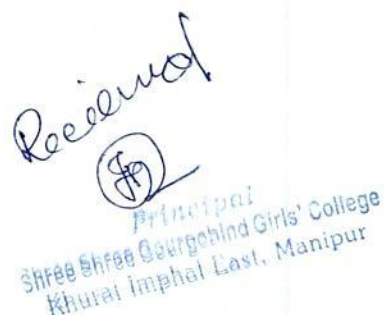 Received
Principal
Shree Shree Gourgobind Girls' College
Khurai Imphal East, Manipur